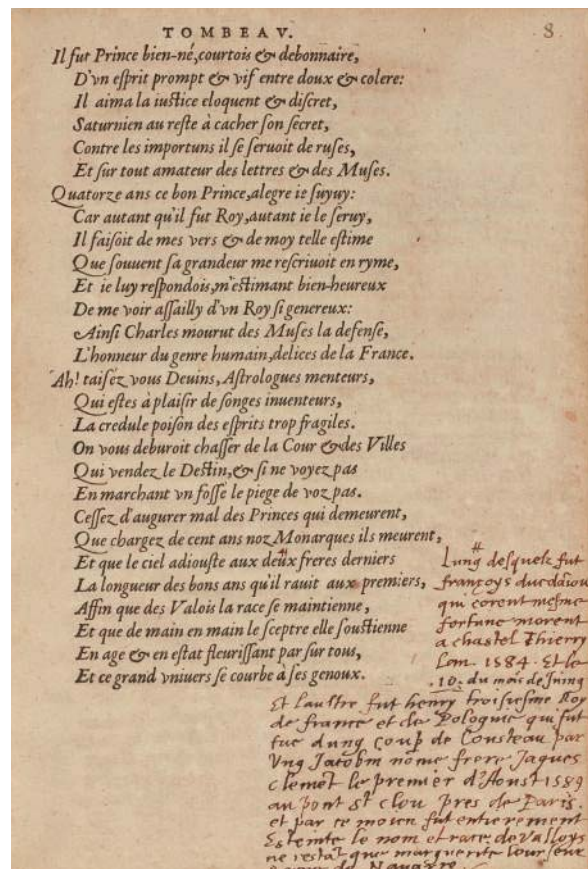 TOMBEAV. 8
Il fut Prince bien-né, courtois & debonnaire,
D'vn esprit prompt & vif entre doux & colere:
Il aima la iustice eloquent & discret,
Saturnien au reste à cacher son secret,
Contre les importuns il se seruoit de ruses,
Et sur tout amateur des lettres & des Muses.
Quatorze ans ce bon Prince, alegre ie suyuy:
Car autant qu'il fut Roy, autant ie le seruy,
Il faisoit de mes vers & de moy telle estime
Que souuent sa grandeur me rescriuoit en ryme,
Et ie luy respondois, m'estimant bien-heureux
De me voir assailly d'vn Roy si genereux:
Ainsi Charles mourut des Muses la defense,
L'honneur du genre humain, delices de la France.
Ah! taisez vous Deuins, Astrologues menteurs,
Qui estes à plaisir de songes inuenteurs,
La credule poison des esprits trop fragiles.
On vous deburoit chasser de la Cour & des Villes
Qui vendez le Destin, & si ne voyez pas
En marchant vn fosse le piege de voz pas.
Cessez d'augurer mal des Princes qui demeurent,
Que chargez de cent ans noz Monarques ils meurent,
Et que le ciel adiouste aux deux freres derniers
La longueur des bons ans qu'il rauit aux premiers,
Affin que des Valois la race se maintienne,
Et que de main en main le sceptre elle soustienne
En age & en estat fleurissant par sur tous,
Et ce grand vniuers se courbe à ses genoux.
Lung desquelz fut
françoys duc daiou
qui corent mesme
fortune morent
a chastel Thierry
lan. 1584. Et le
.10. du mois de Juing
Et laultre fut henry troisiesme Roy
de france et de Pologne qui fut
tue dung coup de Cousteau par
Ung Jacobin nōme frere Jaques
clemēt le premier d'Aoust 1589
au pont St clou pres de Paris.
et par ce moien fut entierement
Esteinte le nom et race de valloys
ne restāt que marguerite leur seur
de Navarre